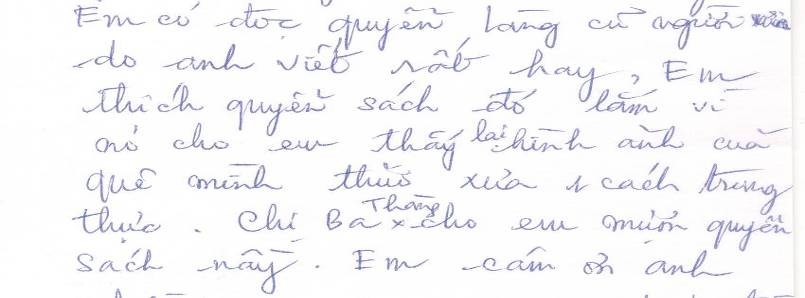 Em có đọc quyển Làng cũ người xưa
do anh viết rất hay, Em
thích quyển sách đó lắm vì
nó cho em thấy lại hình ảnh cuả
quê mình thuở xưa 1 cách trung
thực. Chị Ba Thắng x cho em mượn quyển
sách nầy. Em cám ơn anh